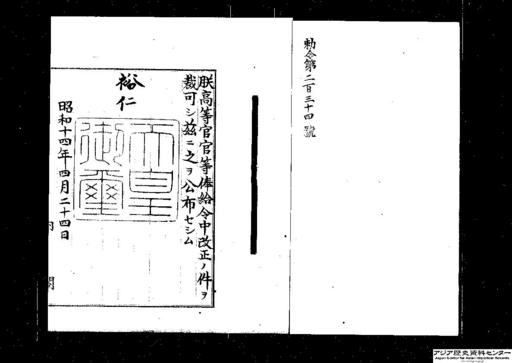 勅令第二百三十四號
朕高等官官等俸給令中改正ノ件ヲ
裁可シ茲ニ之ヲ公布セシム
裕仁
天皇御璽
昭和十四年四月二十四日
内閣
アジア歴史資料センター
Japan Center for Asian Historical Records